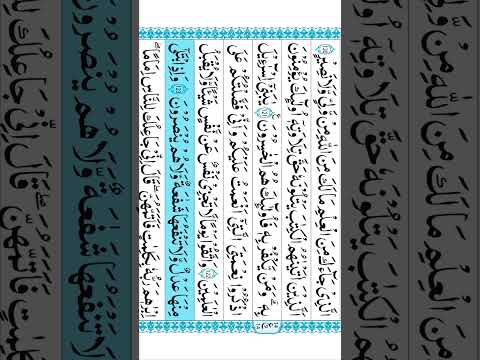 الَّذِیْ جَآءَكَ مِنَ الْعِلْمِ مَا لَكَ مِنَ اللّٰهِ مِنْ وَّلِیٍّ وَّلَا نَصِیْرٍ ﴿۱۲۰﴾
اَلَّذِیْنَ اٰتَیْنٰهُمُ الْكِتٰبَ یَتْلُوْنَهٗ حَقَّ تِلَاوَتِهٖ اُولٰٓئِكَ یُؤْمِنُوْنَ
بِهٖ وَمَنْ یَّكْفُرْ بِهٖ فَاُولٰٓئِكَ هُمُ الْخٰسِرُوْنَ ﴿۱۲۱﴾ یٰبَنِیْۤ اِسْرَآءِیْلَ
اذْكُرُوْا نِعْمَتِیَ الَّتِیْۤ اَنْعَمْتُ عَلَیْكُمْ وَاَنِّیْ فَضَّلْتُكُمْ عَلَی
الْعٰلَمِیْنَ ﴿۱۲۲﴾ وَاتَّقُوْا یَوْمًا لَّا تَجْزِیْ نَفْسٌ عَنْ نَّفْسٍ شَیْـًٔا وَّلَا یُقْبَلُ
مِنْهَا عَدْلٌ وَّلَا تَنْفَعُهَا شَفَاعَةٌ وَّلَا هُمْ یُنْصَرُوْنَ ﴿۱۲۳﴾ وَاِذِ ابْتَلٰۤی
اِبْرٰهٖمَ رَبُّهٗ بِكَلِمٰتٍ فَاَتَمَّهُنَّ قَالَ اِنِّیْ جَاعِلُكَ لِلنَّاسِ اِمَامًا